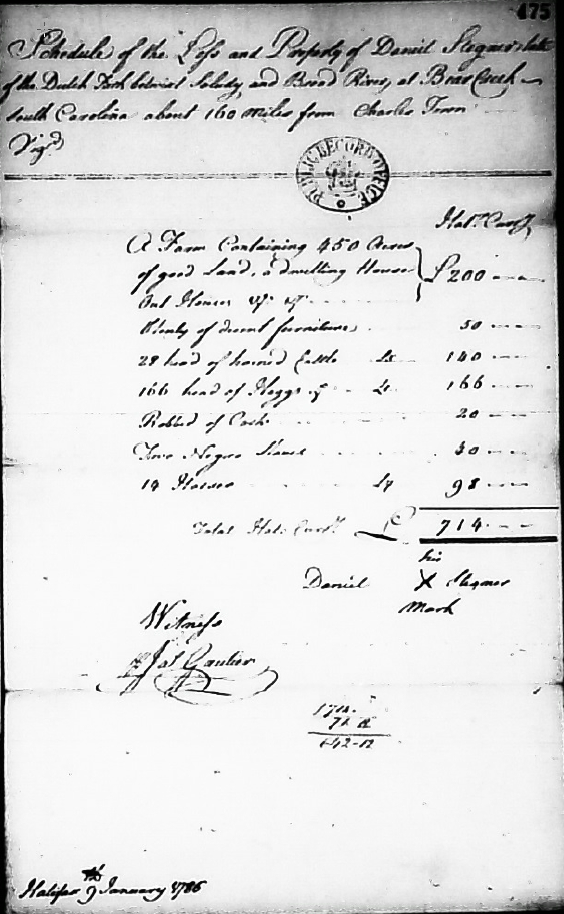 475
Schedule of the Loss and Property of Daniel Stegmer late
of the Dutch Fork betwixt Saludy and Broad River, at Bear Creek
South Carolina about 160 miles from Charles Town
Vizd
PUBLIC RECORD OFFICE
Halx Curcy
A Farm Containing 450 Acres
of good Land, a dwelling House £200
Out Houses &c &c
Plenty of decent furniture 50
28 head of horned Cattle £5 140
166 head of Hoggs @ £1 166
Robbed of Cash 20
Two Negroe Slaves 40
14 Horses £7 98
Total Halx Curcy £ 714
his
Daniel X Stegmer
Mark
Witness
Jas Gautier
714
71 8
642-12
Halifax 9th January 1786